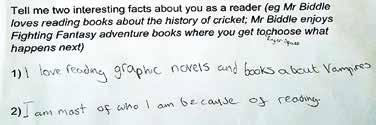 Tell me two interesting facts about you as a reader (eg Mr Biddle
loves reading books about the history of cricket; Mr Biddle enjoys
Fighting Fantasy adventure books where you get tochoose what
happens next)
1) I love reading graphic novels and books about Vampires
2) I am most of who I am because of reading.